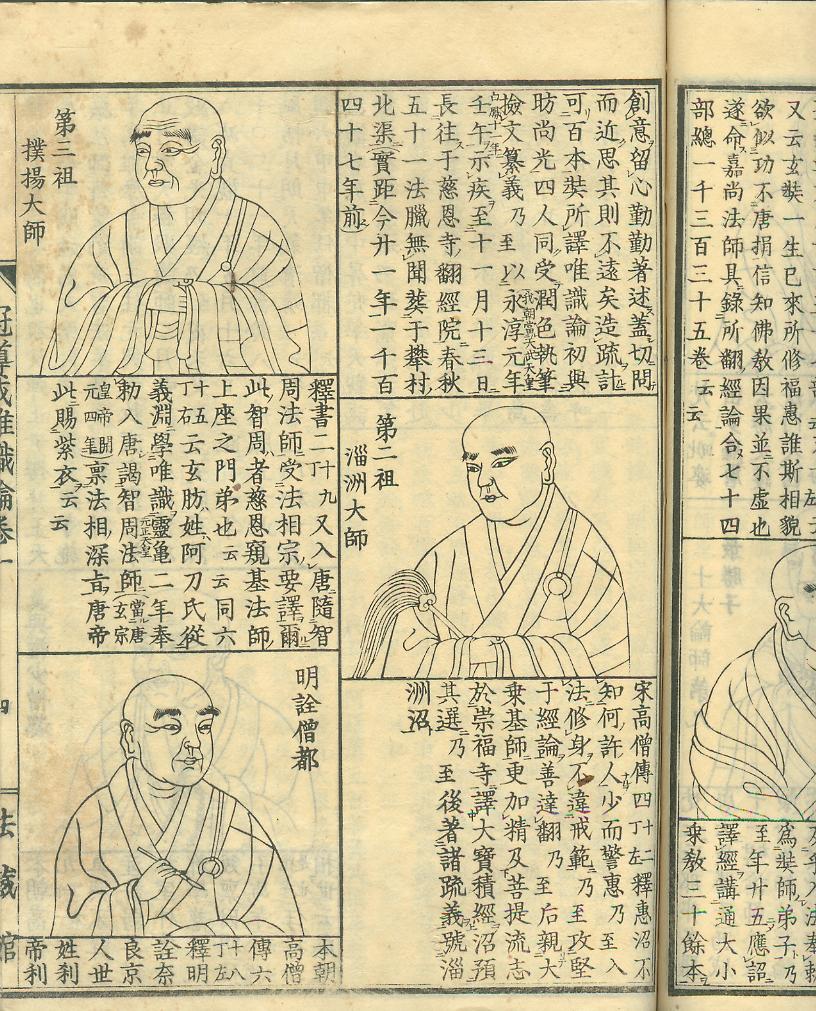 又云玄奘一生已來所修福惠誰斯相貌
欲似功不唐捐信知佛教因果並不虛也
遂命嘉尚法師具錄所翻經論合七十四
部總一千三百三十五卷云云
爲奘師弟子乃
至年廿五應詔
譯經講通大小
乘教三十餘本
創意留心勤勤著述蓋切問
而近思其則不遠矣造疏計
可百本奘所譯唯識論初與
昉尚光四人同受潤色執筆
撿文纂義乃至以永淳元年
壬午示疾至十一月十三日
長往于慈恩寺翻經院春秋
五十一法臘無聞葬于樊村
北渠實距今廿一年一千百
四十七年前
第二祖
淄洲大師
宋高僧傳四十二丁左釋惠沼不
知何許人少而警惠乃至入
法修身不違戒範乃至攻堅
于經論善達翻乃至后親大
乘基師更加精及菩提流志
於崇福寺譯大寶積經沼預
其選乃至後著諸疏義號淄
洲沼
第三祖
撲揚大師
釋書二十九丁又入唐隨智
周法師受法相宗要譯爾
此智周者慈恩窺基法師
上座之門弟也云云同六
十五丁右云玄昉姓阿刀氏從
義淵學唯識靈龜二年奉
勅入唐謁智周法師當唐玄宗
皇帝開元四年稟法相深旨唐帝
此賜紫衣云云
明詮僧都
本朝
高僧
傳六
十八丁左
釋明
詮奈
良京
人世
姓利
帝利
冠導成唯識論卷一
四
法藏館